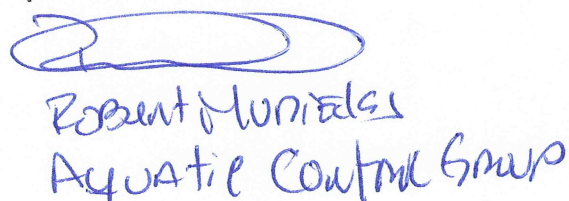 Robert Muniedas
Aquatic Control Group